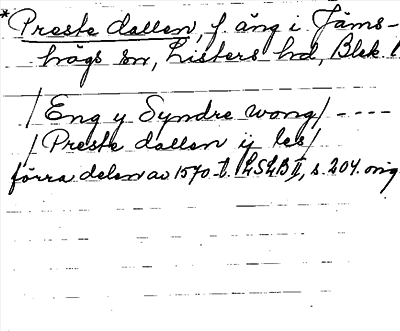 *Preste dallen, f. äng i Jäms-
högs sn, Listers hd, Blek l
/Eng y Syndre wong/ ----
/Preste dallen ij les/
förra delen av 1570-t. LSLB II, s. 204. orig